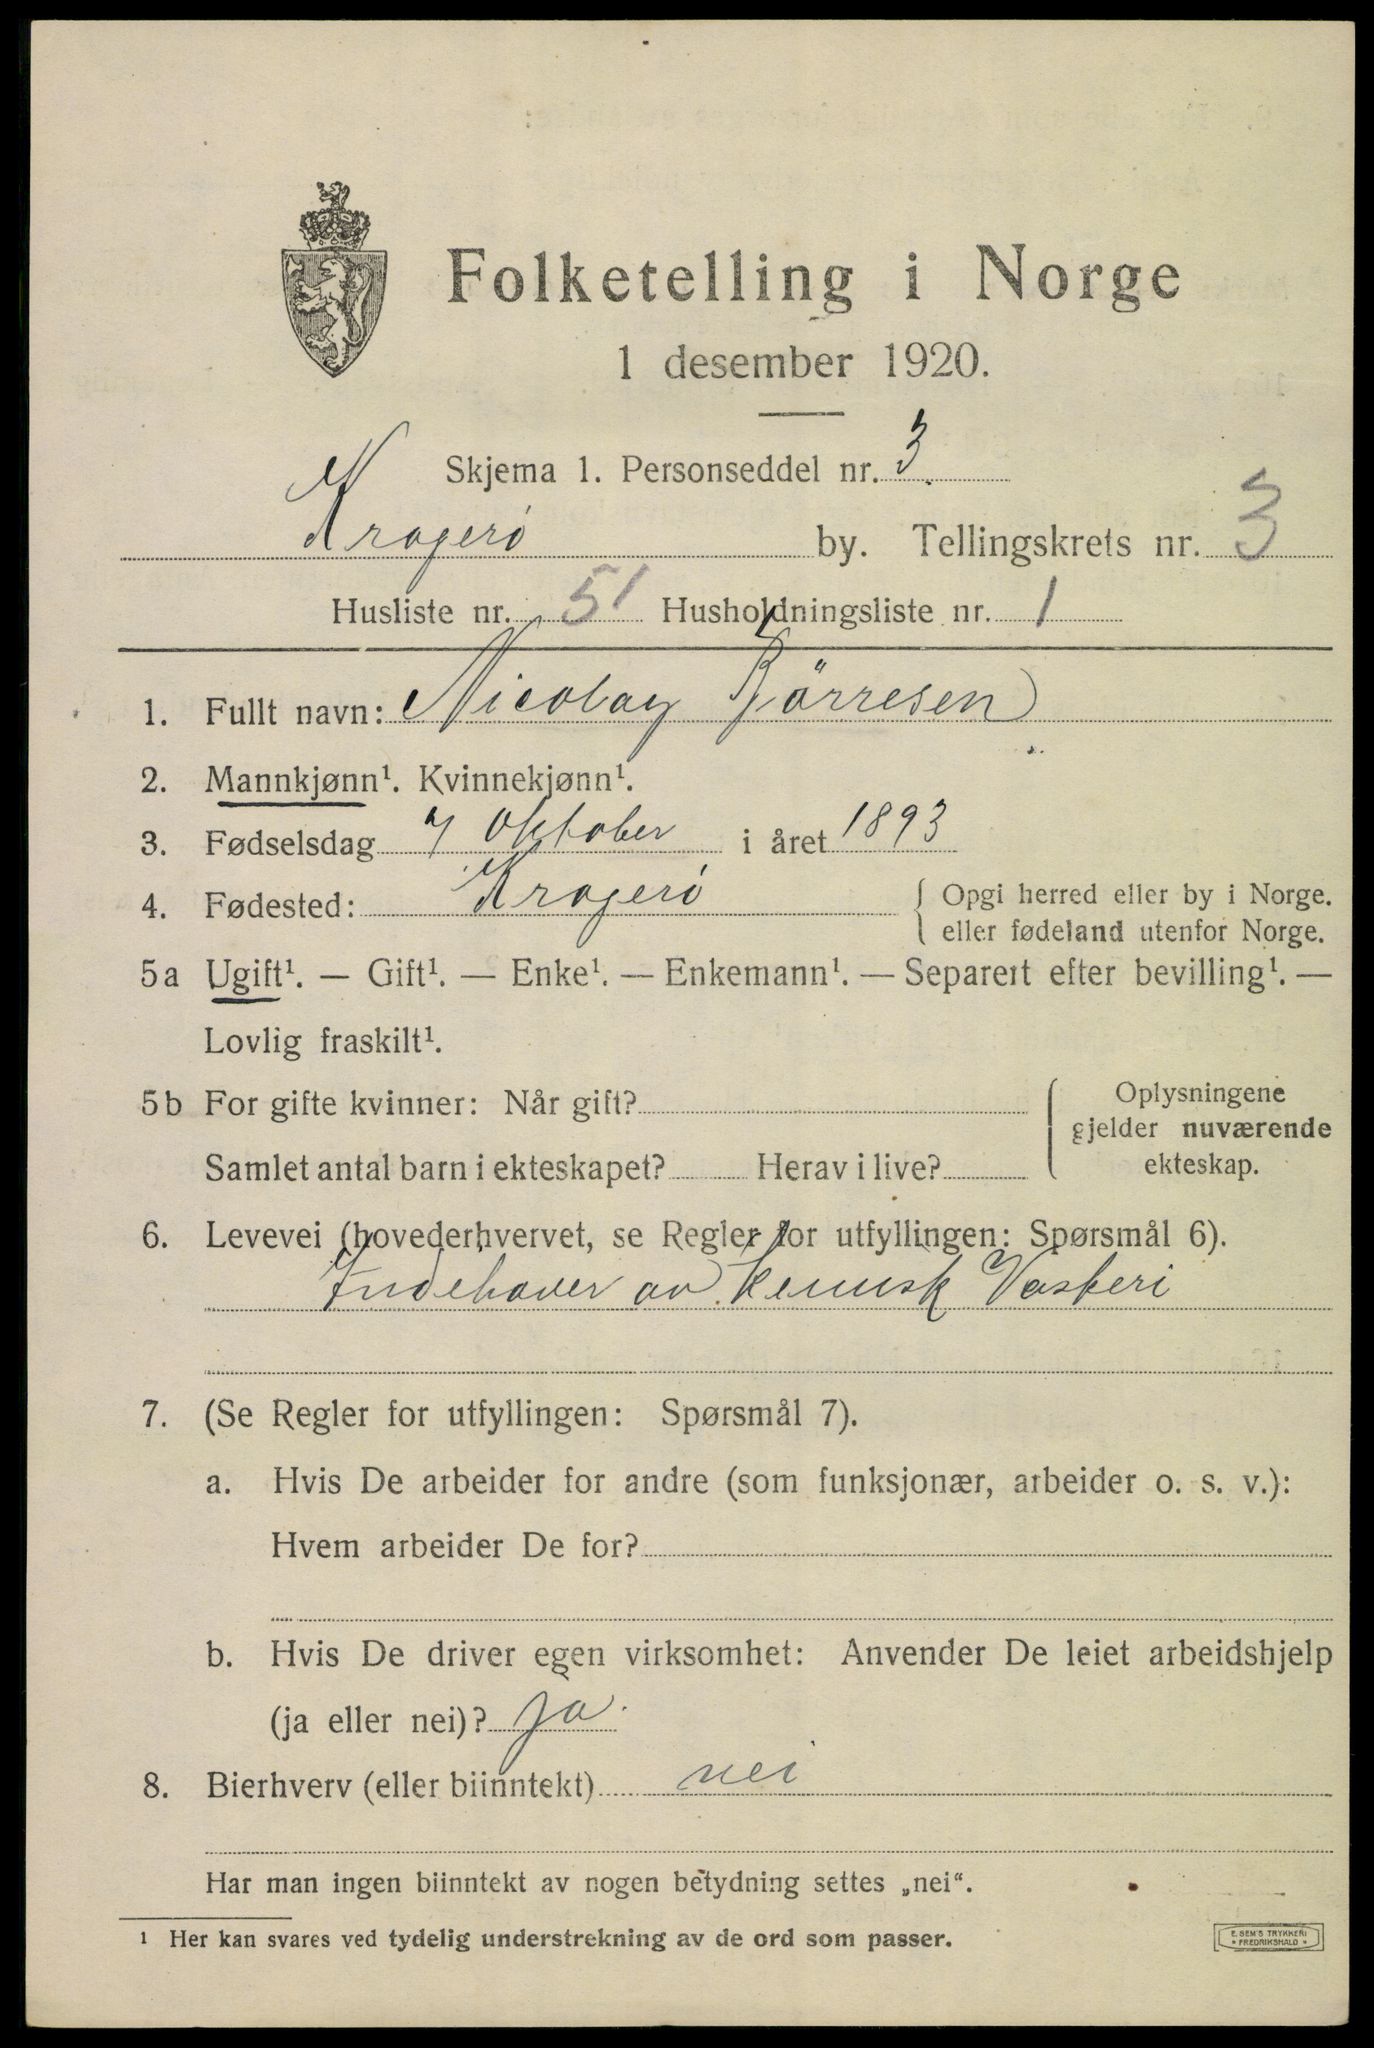 Folketelling i Norge
1 desember 1920.
Skjema 1. Personseddel nr. 3
Kragerø by. Tellingskrets nr. 3
Husliste nr. 51 Husholdningsliste nr. 1
1. Fullt navn: Nicolay Börresen
2. Mannkjønn¹. Kvinnekjønn¹.
3. Fødselsdag 7 Oktober i året 1893
4. Fødested: Kragerø { Opgi herred eller by i Norge.
eller fødeland utenfor Norge.
5a Ugift¹. — Gift¹. — Enke¹. — Enkemann¹. — Separert efter bevilling¹. —
Lovlig fraskilt¹.
5b For gifte kvinner: Når gift?
Samlet antal barn i ekteskapet? Herav i live?
Oplysningene
gjelder nuværende
ekteskap.
6. Levevei (hovederhvervet, se Regler for utfyllingen: Spørsmål 6).
Indehaver av Kemisk Vaskeri
7. (Se Regler for utfyllingen: Spørsmål 7).
a. Hvis De arbeider for andre (som funksjonær, arbeider o. s. v.):
Hvem arbeider De for?
b. Hvis De driver egen virksomhet: Anvender De leiet arbeidshjelp
(ja eller nei)? ja
8. Bierhverv (eller biinntekt) nei
Har man ingen biinntekt av nogen betydning settes „nei“.
¹ Her kan svares ved tydelig understrekning av de ord som passer.
E. SEM'S TRYKKERI
• FREDRIKSHALD •